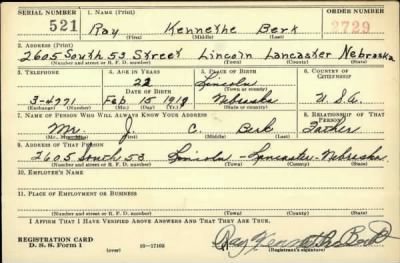 SERIAL NUMBER 1. NAME (Print) ORDER NUMBER
521 Ray Kennethe Berk 2729
(First) (Middle) (Last)
2. ADDRESS (Print)
2605 South 53 Street Lincoln Lancaster Nebraska
(Number and street or R. F. D. number) (Town) (County) (State)
3. TELEPHONE 4. AGE IN YEARS 5. PLACE OF BIRTH 6. COUNTRY OF CITIZENSHIP
22 Lincoln
DATE OF BIRTH (Town or county)
3-4971 Feb 15 1919 Nebraska U.S.A.
(Exchange) (Number) (Mo.) (Day) (Yr.) (State or country)
7. NAME OF PERSON WHO WILL ALWAYS KNOW YOUR ADDRESS 8. RELATIONSHIP OF THAT PERSON
Mr. J. C. Berk Father
(Mr., Mrs., Miss) (First) (Middle) (Last)
9. ADDRESS OF THAT PERSON
2605 South 53 Lincoln - Lancaster - Nebraska
(Number and street or R. F. D. number) (Town) (County) (State)
10. EMPLOYER'S NAME
11. PLACE OF EMPLOYMENT OR BUSINESS
(Number and street or R. F. D. number) (Town) (County) (State)
I AFFIRM THAT I HAVE VERIFIED ABOVE ANSWERS AND THAT THEY ARE TRUE.
REGISTRATION CARD
D. S. S. Form 1 (over) 16-17105 Ray Kennethe Berk
(Registrant's signature)